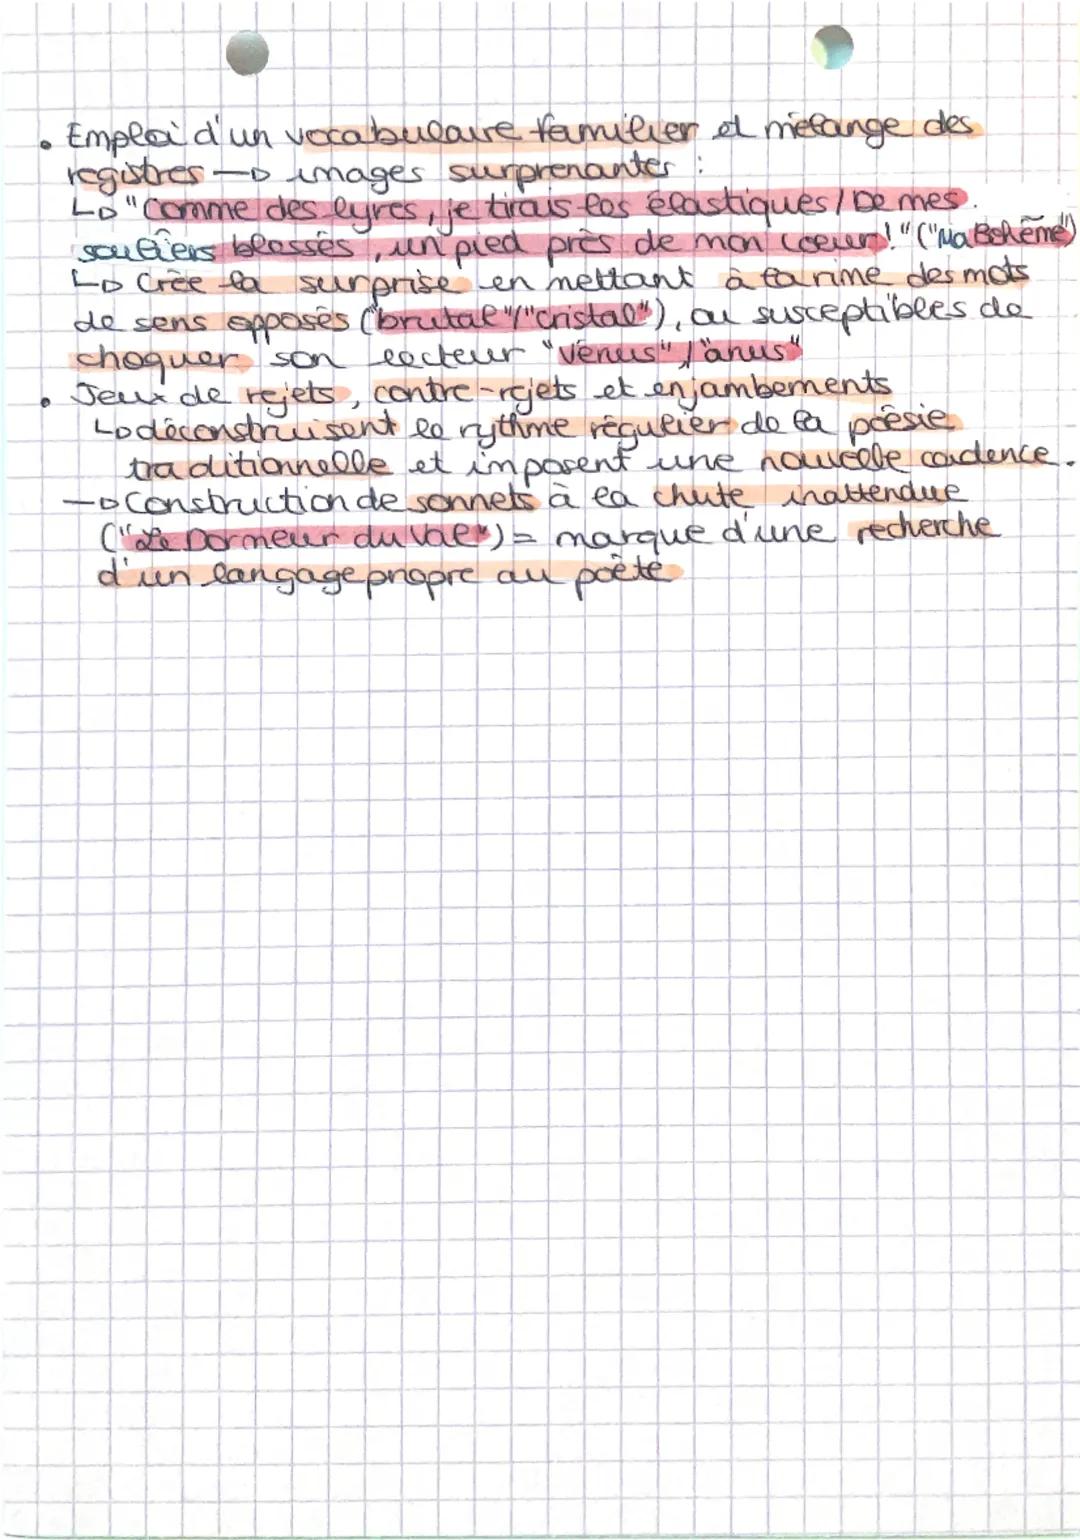 • Emploi d'un vocabulaire familier et mélange des
registres → images surprenantes :
↳ "Comme des lyres, je tirais les élastiques / De mes
souliers blessés, un pied près de mon coeur!" ("Ma Bohême")
↳ Crée la surprise en mettant à la rime des mots
de sens opposés ("brutal"/"cristal"), ou susceptibles de
choquer son lecteur "Vénus"/"anus"
• Jeux de rejets, contre-rejets et enjambements
↳ déconstruisent le rythme régulier de la poésie
traditionnelle et imposent une nouvelle cadence.
→ Construction de sonnets à la chute inattendue
("Le Dormeur du Val") = marque d'une recherche
d'un langage propre au poète